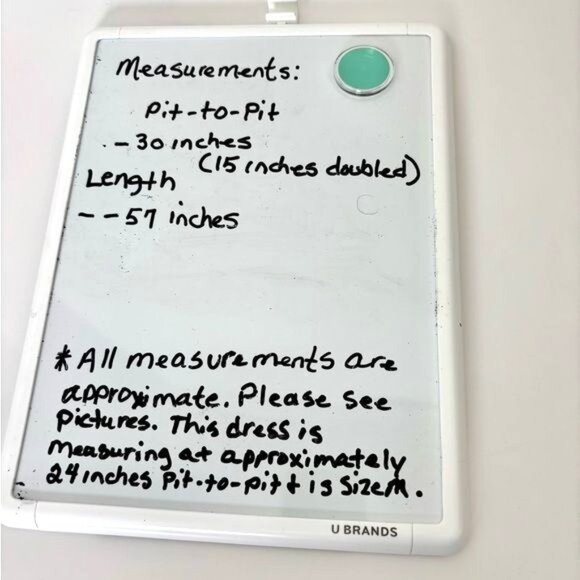 Measurements:
Pit-to-Pit
- 30 inches
(15 inches doubled)
Length
-- 57 inches
* All measurements are
approximate. Please see
pictures. This dress is
measuring at approximately
24 inches Pit-to-pit & is Size M.
U BRANDS